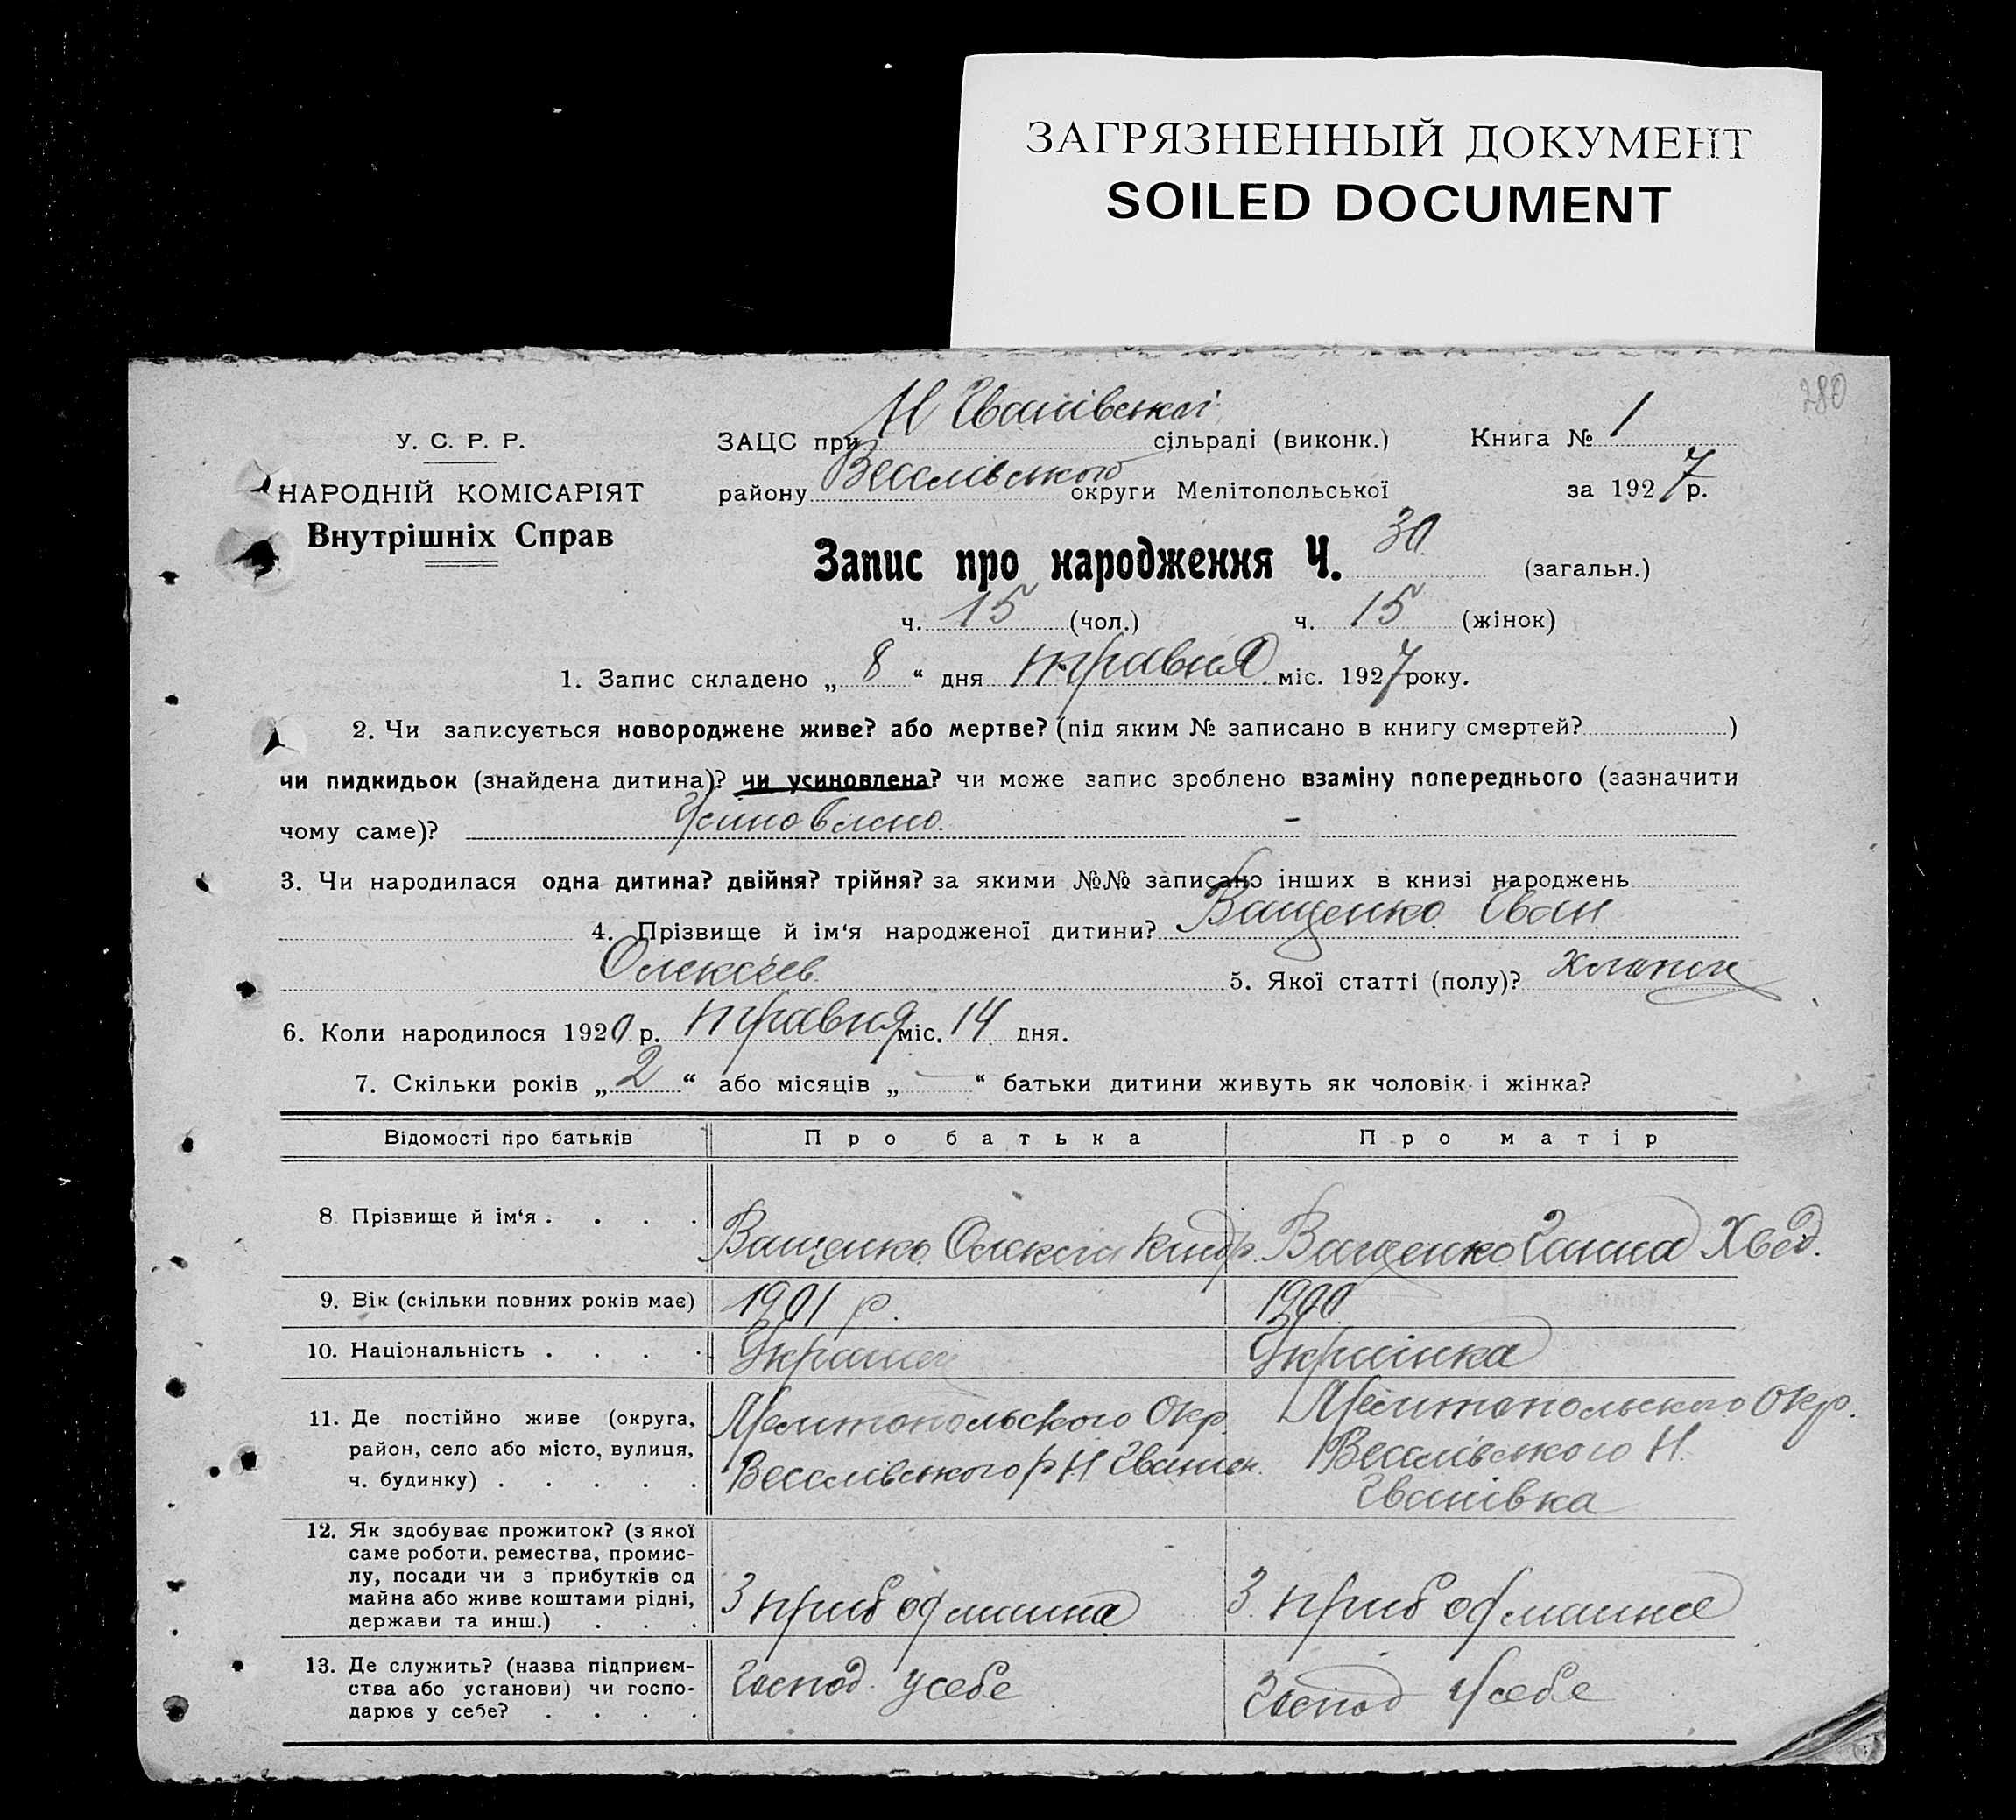 ЗАГРЯЗНЕННЫЙ ДОКУМЕНТ
SOILED DOCUMENT
280
У. С. Р. Р.
НАРОДНІЙ КОМІСАРІЯТ
Внутрішніх Справ
ЗАЦС при Н Іванівській сільраді (виконк.) Книга № 1
району Веселівського округи Мелітопольської за 1927 р.
Запис про народження Ч. 30 (загальн.)
ч. 15 (чол.) ч. 15 (жінок)
1. Запис складено „ 8 “ дня травня міс. 1927 року.
2. Чи записується новороджене живе? або мертве? (під яким № записано в книгу смертей? )
чи пидкидьок (знайдена дитина)? чи усиновлена? чи може запис зроблено взаміну попереднього (зазначити
чому саме)? Усиновлено. –
3. Чи народилася одна дитина? двійня? трійня? за якими №№ записано інших в книзі народжень
4. Прізвище й ім‘я народженої дитини? Ващенко Іван
Олексіев. 5. Якої статті (полу)? хлопець
6. Коли народилося 1920 р. травня міс. 14 дня.
7. Скільки років „ 2 “ або місяців „ — “ батьки дитини живуть як чоловік і жінка?
Відомості про батьків Про батька Про матір
8 Прізвище й ім‘я . . . . . Ващенко Олексій Кіндр. Ващенко Ганна Хвед.
9. Вік (скільки повних років має) 1901 р. 1900
10. Національність . . . . Українець Українка
11. Де постійно живе (округа,
район, село або місто, вулиця,
ч. будинку) . . . . .
Мелитопольського Окр.
Веселівського р Н Іванівк.
Мелитопольського Окр.
Веселівського Н.
Іванівка
12. Як здобуває прожиток? (з якої
саме роботи. ремества, промис-
лу, посади чи з прибутків од
майна або живе коштами рідні,
держави та инш.) . . .
З приб од майна
З. приб од майна
13. Де служить? (назва підприєм-
ства або установи) чи госпо-
дарює у себе? . . . .
Господ. усебе
Господ усебе